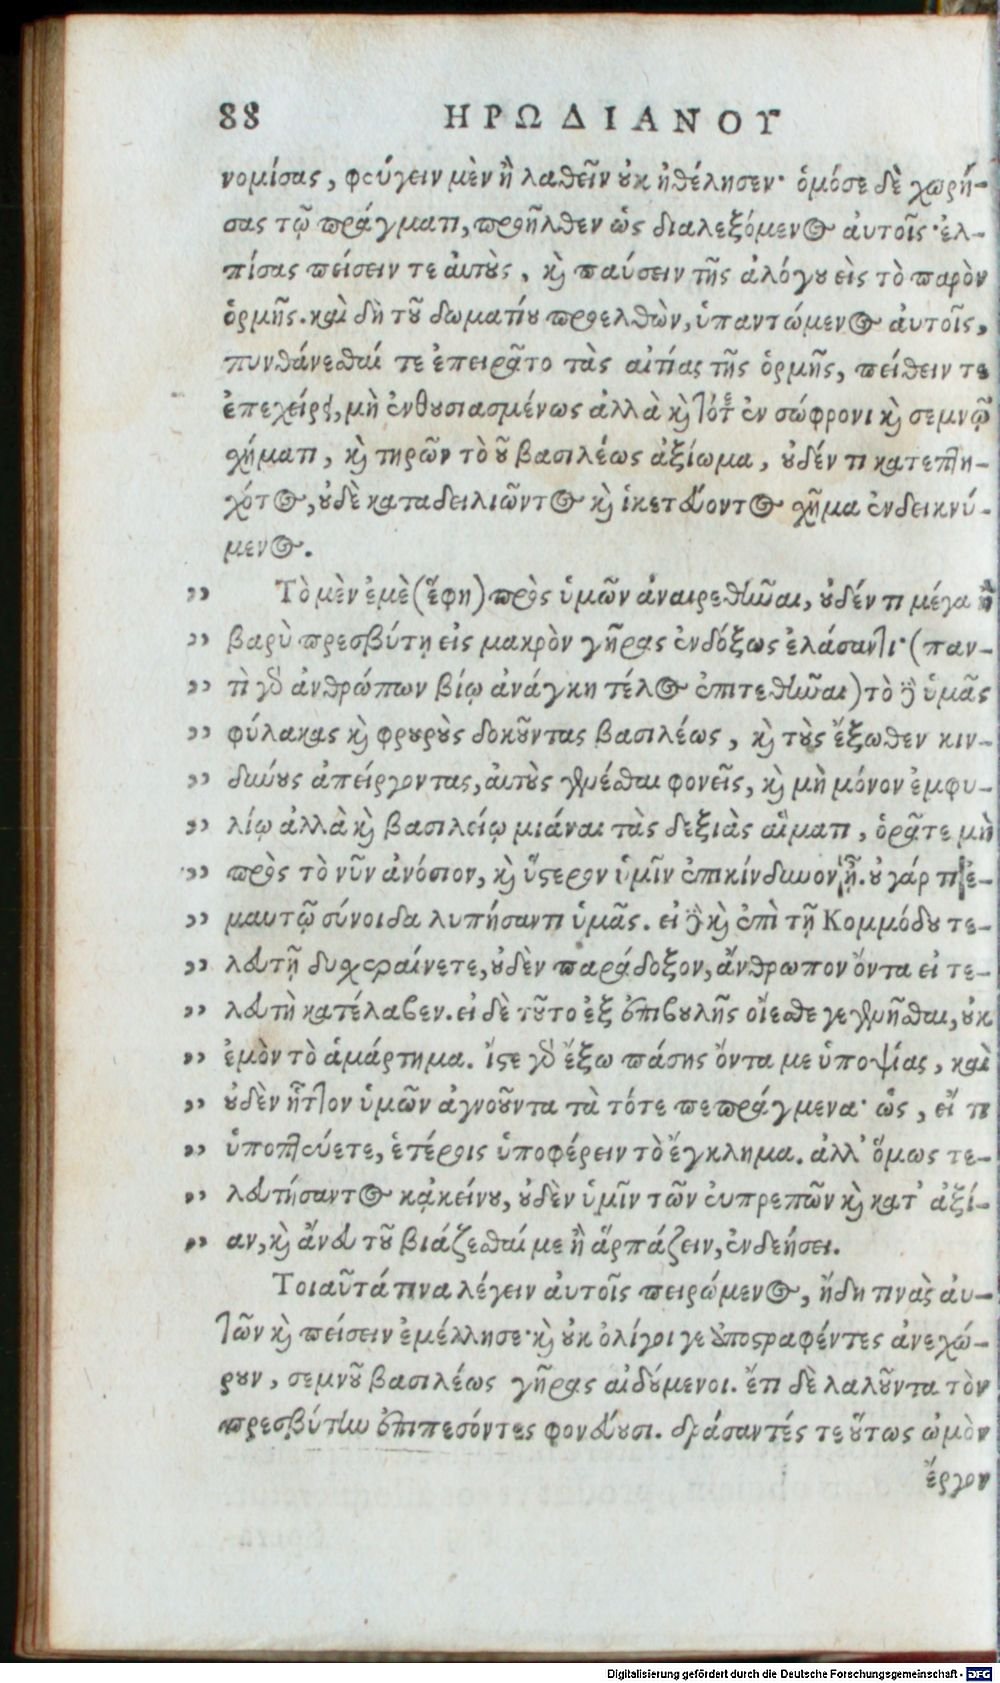 88 ΗΡΩΔΙΑΝΟΥ
νομίσας, φεύγειν μὲν ἢ λαθεῖν οὐκ ἠθέλησεν· ὁμόσε δὲ χωρή-
σας τῷ πράγματι, προῆλθεν ὡς διαλεξόμενος αὐτοῖς· ἐλ-
πίσας πείσειν τε αὐτοὺς, καὶ παύσειν τῆς ἀλόγου εἰς τὸ παρὸν
ὁρμῆς. καὶ δὴ τοῦ δωματίου προελθὼν, ὑπαντώμενος αὐτοῖς,
πυνθάνεσθαί τε ἐπειρᾶτο τὰς αἰτίας τῆς ὁρμῆς, πείθειν τε
ἐπεχείρει, μὴ ἐνθουσιασμένως ἀλλὰ καὶ τότε ἐν σώφρονι καὶ σεμνῷ
σχήματι, καὶ τηρῶν τὸ τοῦ βασιλέως ἀξίωμα, οὐδέν τι κατεπτη-
χότος, οὐδὲ καταδειλιῶντος καὶ ἱκετεύοντος σχῆμα ἐνδεικνύ-
μενος.
" Τὸ μὲν ἐμὲ (ἔφη) πρὸς ὑμῶν ἀναιρεθῆναι, οὐδέν τι μέγα ἢ
" βαρὺ πρεσβύτῃ εἰς μακρὸν γῆρας ἐνδόξως ἐλάσαντι· (παν-
" τὶ γὰρ ἀνθρώπων βίῳ ἀνάγκη τέλος ἐπιτεθῆναι) τὸ δὲ ὑμᾶς
" φύλακας καὶ φρουροὺς δοκοῦντας βασιλέως, καὶ τοὺς ἔξωθεν κιν-
" δύνους ἀπείργοντας, αὐτοὺς γενέσθαι φονεῖς, καὶ μὴ μόνον ἐμφυ-
" λίῳ ἀλλὰ καὶ βασιλείῳ μιάναι τὰς δεξιὰς αἵματι, ὁρᾶτε μὴ
" πρὸς τὸ νῦν ἀνόσιον, καὶ ὕστερον ὑμῖν ἐπικίνδυνον ᾖ. οὐ γάρ τι ἐ-
" μαυτῷ σύνοιδα λυπήσαντι ὑμᾶς. εἰ δὲ καὶ ἐπὶ τῇ Κομμόδου τε-
" λευτῇ δυσχεραίνετε, οὐδὲν παράδοξον, ἄνθρωπον ὄντα εἰ τε-
" λευτὴ κατέλαβεν. εἰ δὲ τοῦτο ἐξ ἐπιβουλῆς οἴεσθε γεγενῆσθαι, οὐκ
" ἐμὸν τὸ ἁμάρτημα. ἴστε γὰρ ἔξω πάσης ὄντα με ὑποψίας, καὶ
" οὐδὲν ἧττον ὑμῶν ἀγνοοῦντα τὰ τότε πεπραγμένα· ὡς, εἴ τι
" ὑποπτεύετε, ἑτέροις ὑποφέρειν τὸ ἔγκλημα. ἀλλ' ὅμως τε-
" λευτήσαντος κἀκείνου, οὐδὲν ὑμῖν τῶν εὐπρεπῶν καὶ κατ' ἀξί-
" αν, καὶ ἄνευ τοῦ βιάζεσθαί με ἢ ἁρπάζειν, ἐνδεήσει.
Τοιαῦτά τινα λέγειν αὐτοῖς πειρώμενος, ἤδη τινὰς αὐ-
τῶν καὶ πείσειν ἐμέλλησε· καὶ οὐκ ὀλίγοι γε ὑποστραφέντες ἀνεχώ-
ρουν, σεμνοῦ βασιλέως γῆρας αἰδούμενοι. ἔτι δὲ λαλοῦντα τὸν
πρεσβύτην ἐπιπεσόντες φονεύουσι. δράσαντές τε οὕτως ὠμὸν
ἔργον
Digitalisierung gefördert durch die Deutsche Forschungsgemeinschaft - DFG